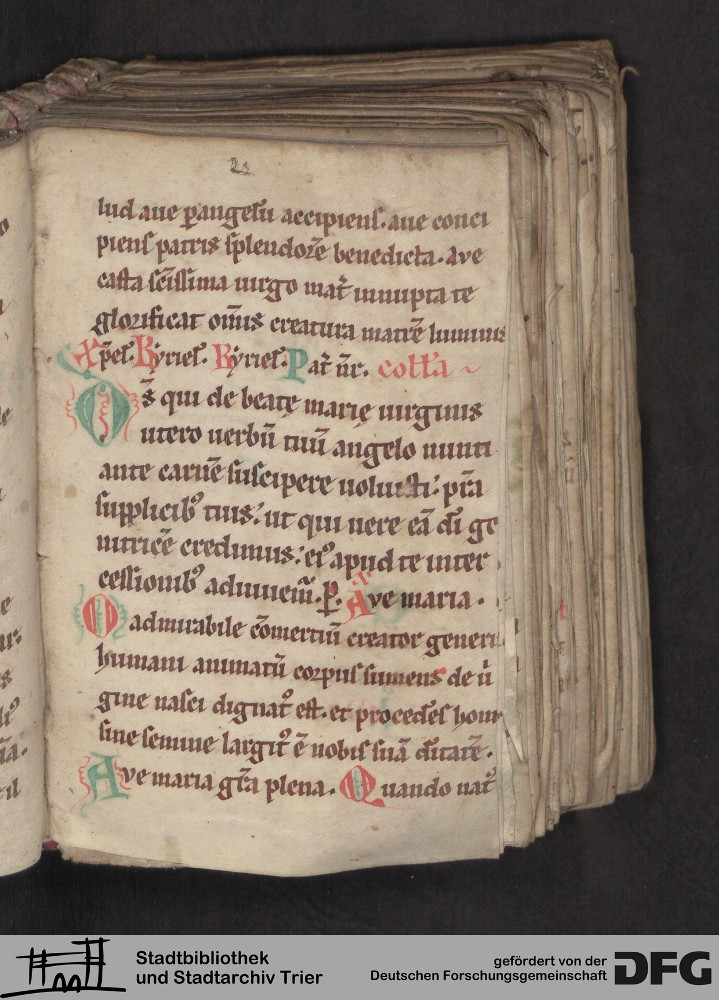 lud aue p̱angelū accipienſ. aue conci
pienſ patris ſplendorē benedicta. Ave
caſta ſc̄iſſima uirgo mat̄ innupta te
glorificat om̄is creatura matrē luminis
Xp̄eſ. Kyrieſ. Kyrieſ. Pat̄ nr̄. coll̄a
Os̄ qui de beatę marię uirginis
utero uerbū tuū angelo nunti
ante carnē ſuſcipere uoluiſti: pr̄a
ſupplicibꝰ tuis: ut qui uere eā dī ge
nitricē credimus: eiꝰ apud te inter
ceſſionibꝰ adiuuem̄. p̱. Ave maria.
O admirabile cōmertiū creator generis
humani animatū corpus ſumens de ui
gine naſci dignatꝰ eſt. et procedēs homo
ſine ſemine largitꝰ ē nobis ſuā dītatē.
Ave maria gr̄a plena. Quando natꝰ
Stadtbibliothek
und Stadtarchiv Trier
gefördert von der
Deutschen Forschungsgemeinschaft
DFG